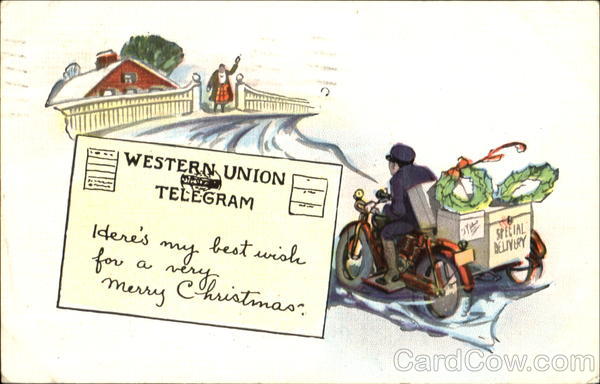 WESTERN UNION
TELEGRAM
Here's my best wish
for a very
Merry Christmas.
SPECIAL
DELIVERY
CardCow.com